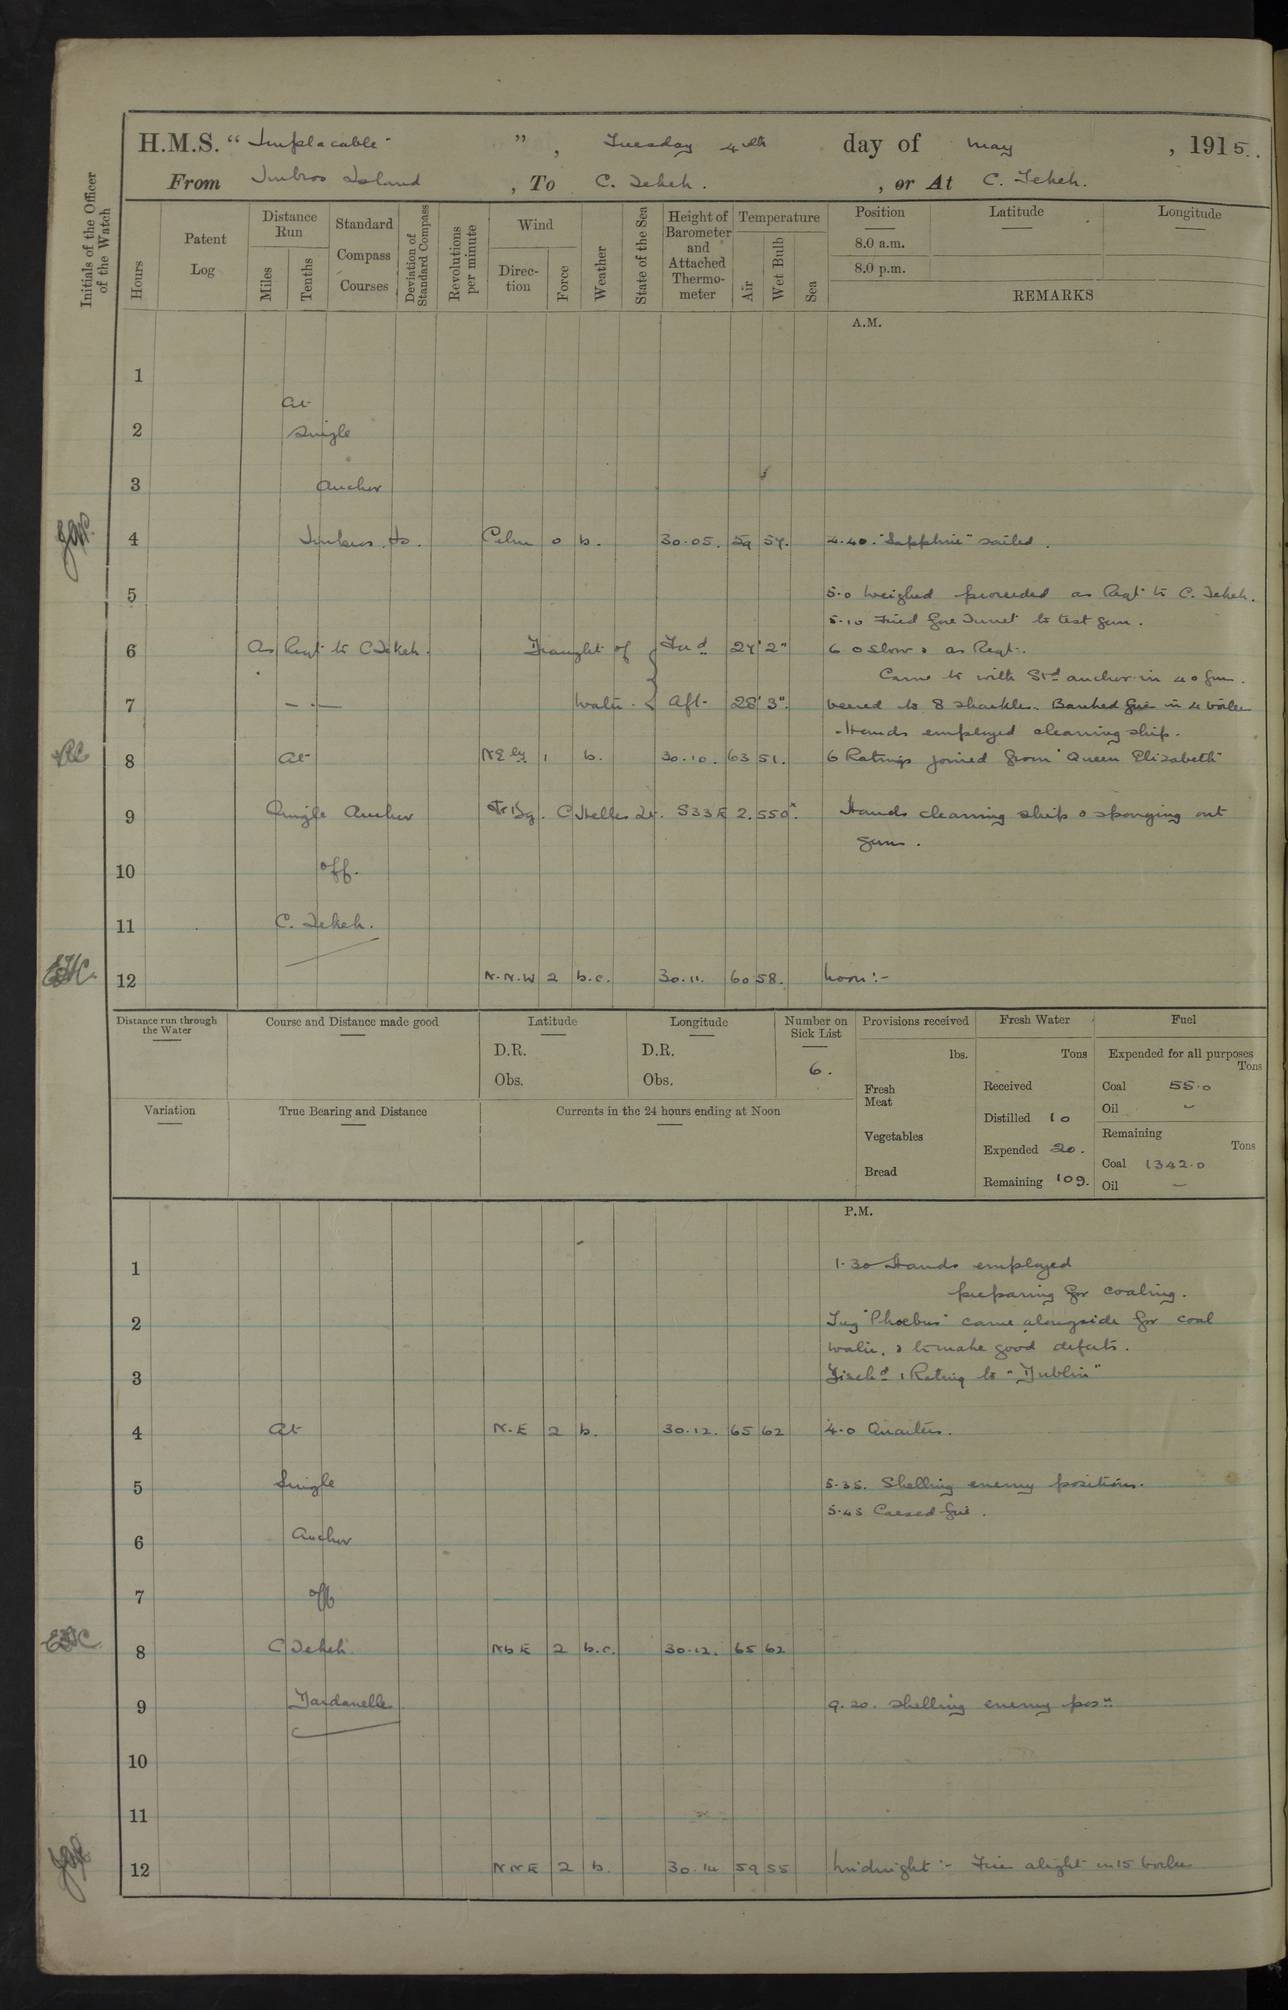 H.M.S. “Implacable” , Tuesday 4th day of May , 1915.
From Imbros Island , To C. Tekeh. , or At C. Tekeh.
Initials of the Officer of the Watch
Hours
Patent Log
Distance Run
Miles
Tenths
Standard Compass Courses
Deviation of Standard Compass
Revolutions per minute
Wind
Direction
Force
Weather
State of the Sea
Height of Barometer and Attached Thermometer
Temperature
Air
Wet Bulb
Sea
Position Latitude Longitude
8.0 a.m.
8.0 p.m.
REMARKS
A.M.
1
At
2 Single
3 Anchor
4 Imbros Is. Calm 0 b. 30.05. 59 57. 4.40. "Sapphire" sailed.
5 5.0 Weighed proceeded as Reqt to C. Tekeh.
5.10 Fired fore Turret to test gun.
6 As Reqt to C Tekeh. Draught of Fwd 27' 2" 6 0 Slow & as Reqt.
Came to with Stbd anchor in 40 fm.
7 — . — water. Aft. 28' 3". veered to 8 shackles. Banked fires in 4 boilers
Hands employed cleaning ship.
8 At NEly. 1 b. 30.10. 63 51. 6 Ratings joined from "Queen Elizabeth"
9 Single Anchor Tr Bg. C Helles Lt. S33E 2.550x. Hands cleaning ship & sponging out
guns.
10 off.
11 C. Tekeh.
12 N.N.W 2 b.c. 30.11. 60 58. Noon:-
Distance run through the Water
Course and Distance made good
Latitude
D.R.
Obs.
Longitude
D.R.
Obs.
Number on Sick List
6.
Variation
True Bearing and Distance
Currents in the 24 hours ending at Noon
Provisions received
lbs.
Fresh Meat
Vegetables
Bread
Fresh Water
Tons
Received
Distilled 10
Expended 20.
Remaining 109.
Fuel
Expended for all purposes
Tons
Coal 55.0
Oil –
Remaining
Tons
Coal 1342.0
Oil –
P.M.
1 1.30 Hands employed
preparing for coaling.
2 Tug "Phoebus" came alongside for coal
water, & to make good defects.
3 Disch'd 1 Rating to "Dublin"
4 At N.E 2 b. 30.12. 65 62 4.0 Quarters.
5 Single 5.35. Shelling enemy positions.
5.45 Ceased fire.
6 Anchor
7 off
8 C Tekeh. NbE 2 b.c. 30.12. 65 62
9 Dardanelles 9.20. Shelling enemy posn
10
11
12 NNE 2 b. 30.14 59 55 Midnight:- Fires alight in 15 boilers